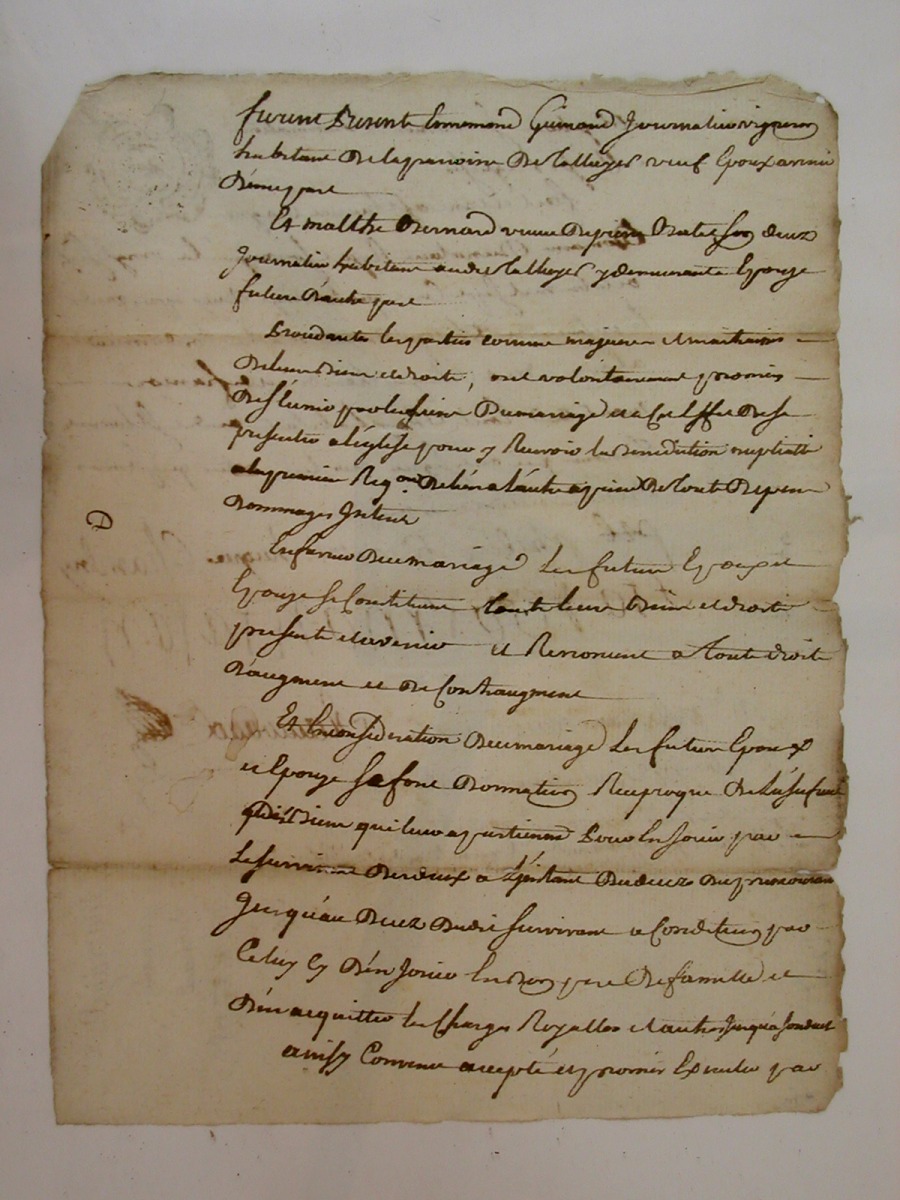 furent Presents Ennemond Guimand Journalier vigneron
habitant de la paroisse de vieuf Epoux avenir
d'une part
Et malthe Bernard veuve de pierre son deuz
Journalier habitant audit y demeurante Epouze
future d'autre part
Procedantes les parties comme majeures et maitraises
de leurs biens et droits, ont volontairement promis
de s'unir par le lien du mariage et a cet effet de se
presenter a l'églize pour y Recevoir la Benediction nuptialle
a la premiere Reqon de l'un a l'autre a peine de tout depens
dommages Interets
En faveur du mariage les futurs Epoux et
Epouze se Constituent touts leurs biens et droits
presents et avenir et Renoncent a touts droits
d'augment et de Contraugment
Et En Consideration du mariage les futurs Epoux
et Epouze se font donnation Reciproque de l'usufruit
des biens qui leur apartiennent Pour En Jouir par
le survivant des deux a l'instant du deces du premourant
Jusqu'au deces dudit survivant a Condition par
Celuy cy d'en Jouir En bon pere de famille et
d'en acquitter les Charges Royalles et autres
ainsy Convenu accepté et promis Executer par
D